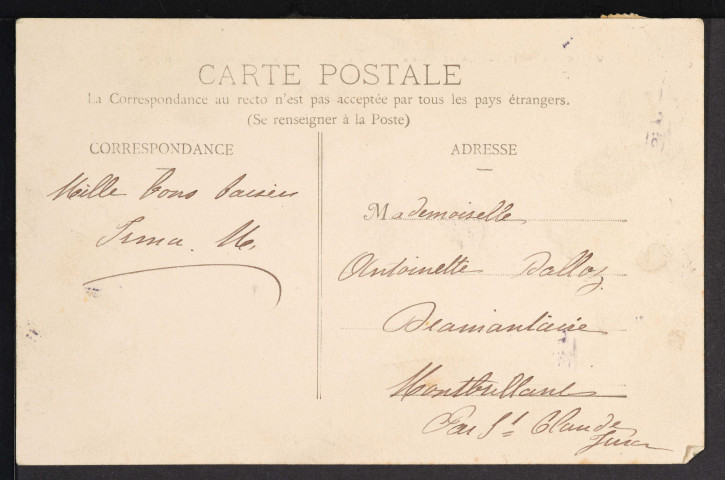 CARTE POSTALE
La Correspondance au recto n'est pas acceptée par tous les pays étrangers.
(Se renseigner à la Poste)
CORRESPONDANCE
Mille bons baisers
Irma. M.
ADRESSE
Mademoiselle
Antoinette Dalloz
Diamantaire
Montbrillant
Par St Claude
Jura